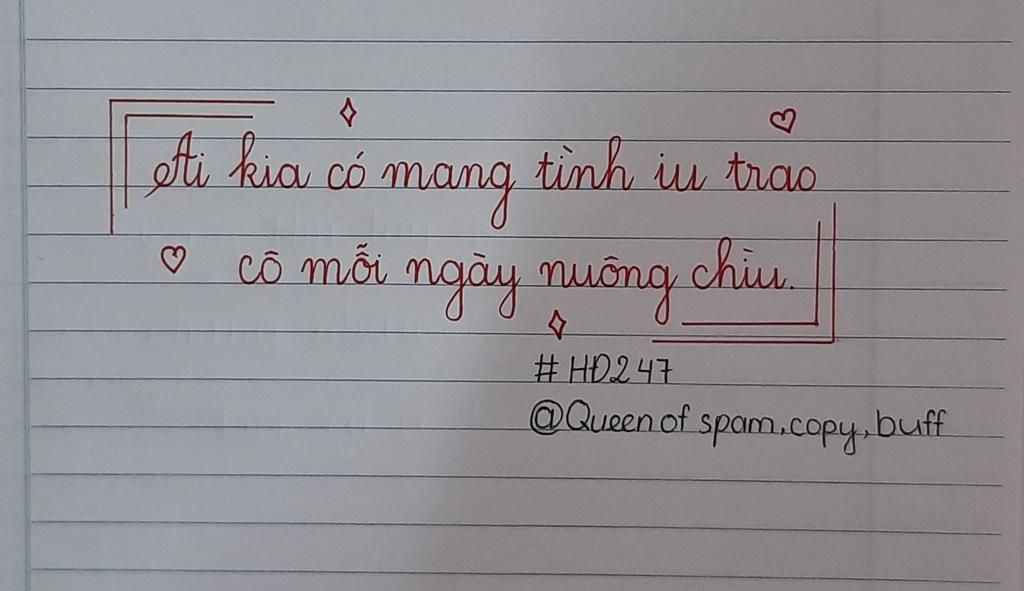 Ai kia có mang tình iu trao
cô mỗi ngày nuông chìu.
#HĐ247
@Queen of spam,copy,buff